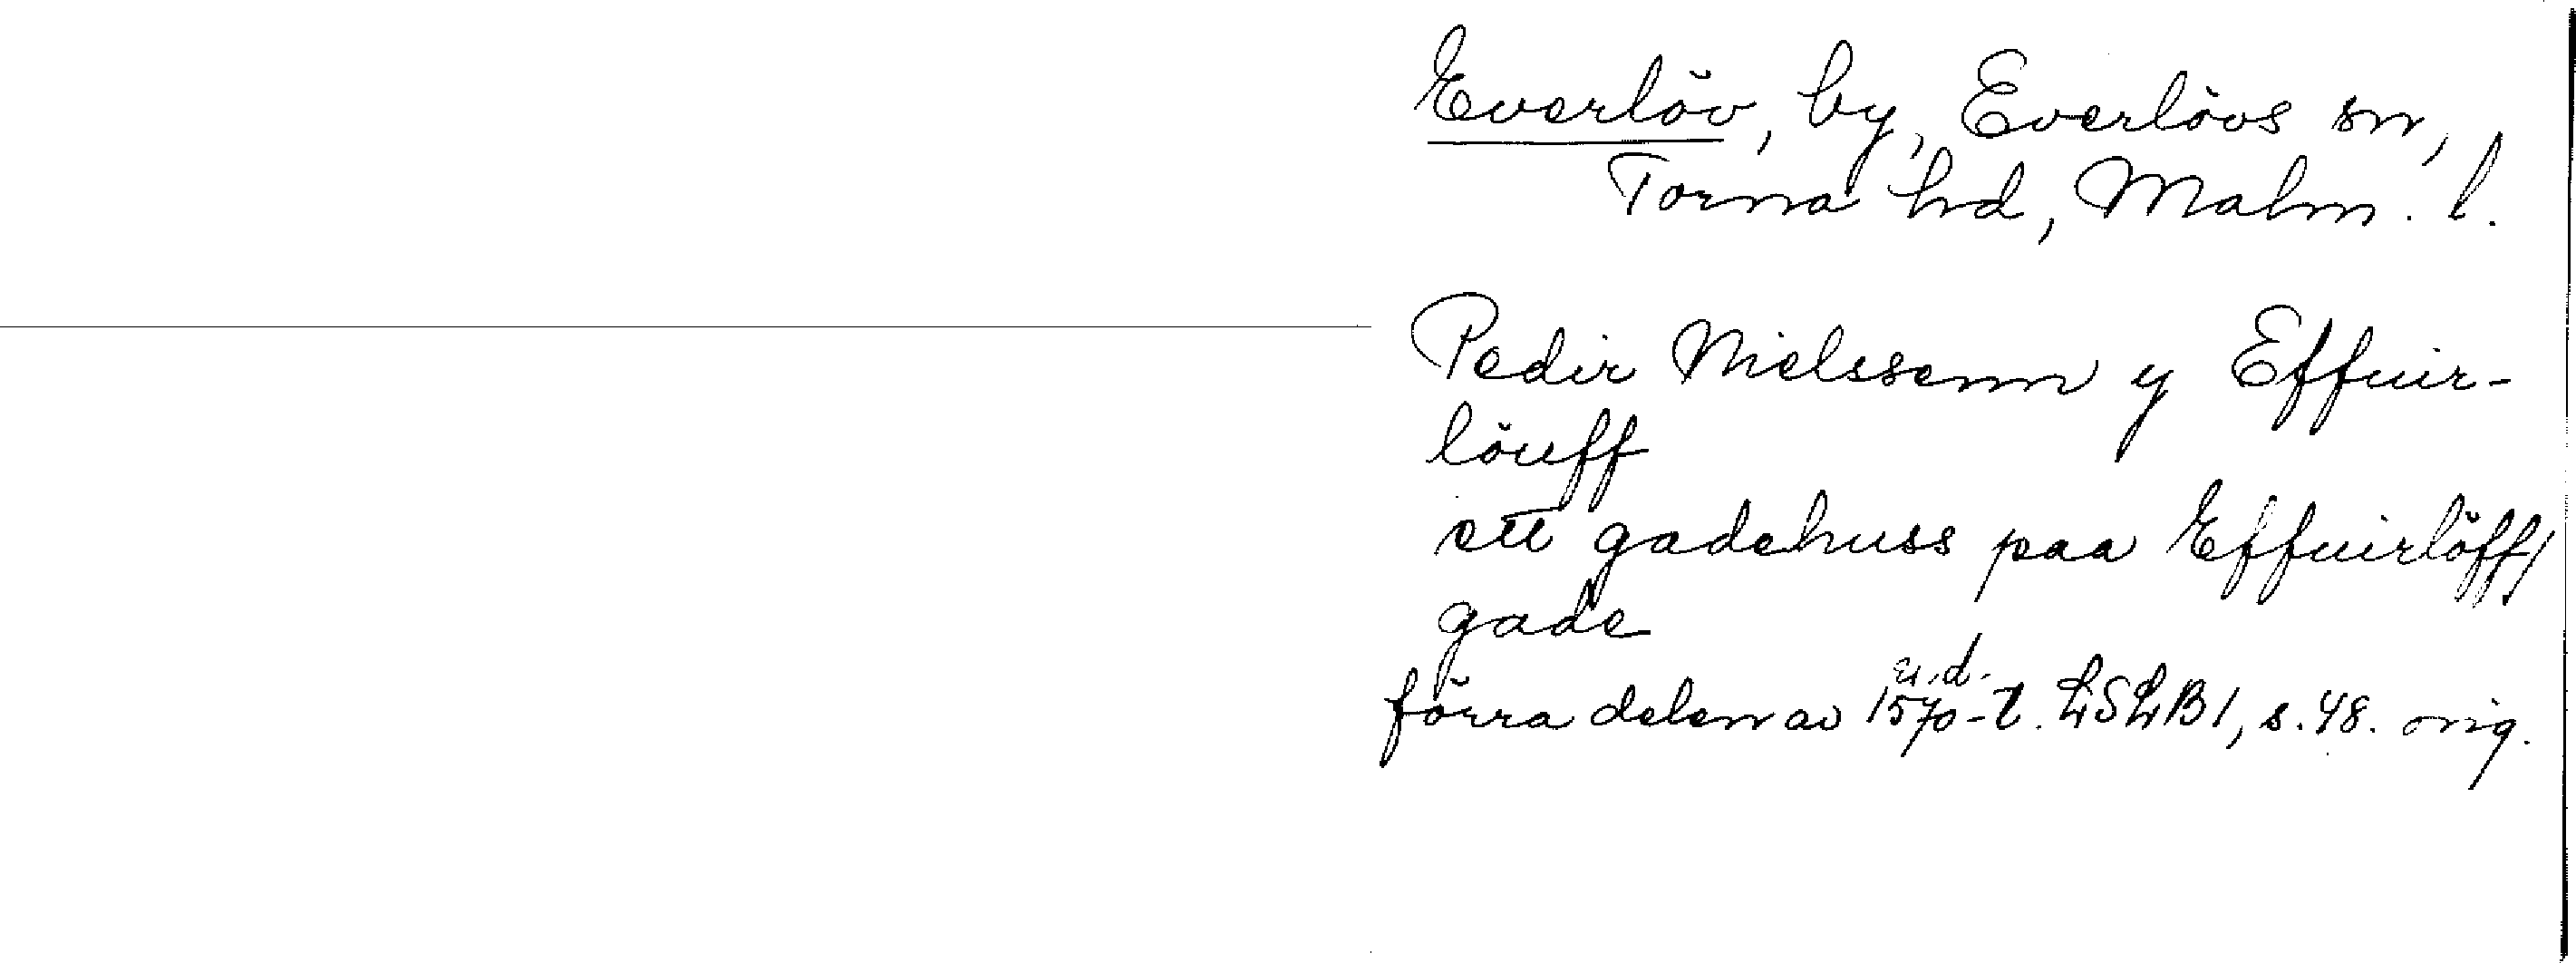 Everlöv, by, Everlövs sn,
Torna hd, Malm. l.
Pedir Nielssenn y Effuir-
löuff
ett gadehuss paa Effuirlöff/
gade
u.d.
förra delen av 1570-t. LSLB1, s. 48. orig.